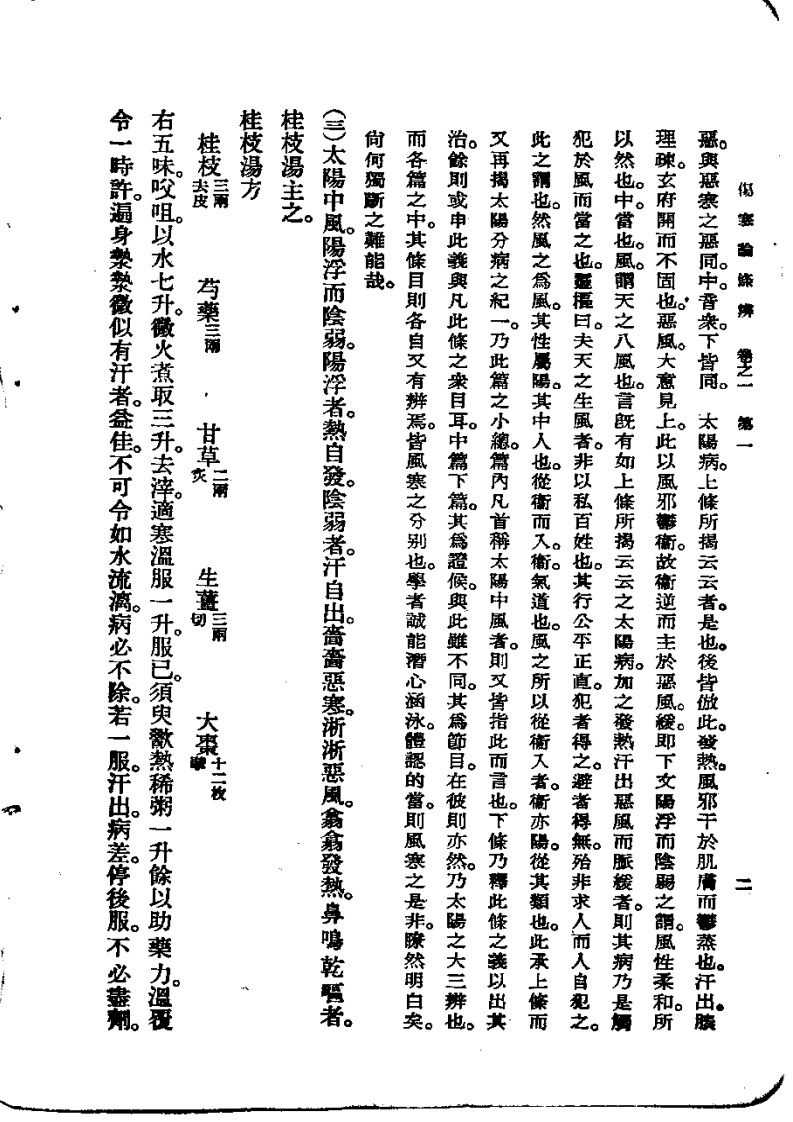 傷寒論條辨 卷之一 第一 二
惡。與惡寒之惡同。中。音衆。下皆同。 太陽病。上條所揭云云者。是也。後皆倣此。發熱。風邪干於肌膚而鬱蒸也。汗出。腠
理疎。玄府開而不固也。惡風。大意見上。此以風邪鬱衞。故衞逆而主於惡風。緩。卽下文陽浮而陰弱之謂。風性柔和。所
以然也。中。當也。風。謂天之八風也。言旣有如上條所揭云云之太陽病。加之發熱汗出惡風而脈緩者。則其病乃是觸
犯於風而當之也。靈樞曰。夫天之生風者。非以私百姓也。其行公平正直。犯者得之。避者得無。殆非求人而人自犯之。
此之謂也。然風之爲風。其性屬陽。其中人也。從衞而入。衞。氣道也。風之所以從衞入者。衞亦陽。從其類也。此承上條而
又再揭太陽分病之紀一。乃此篇之小總。篇內凡首稱太陽中風者。則又皆指此而言也。下條乃釋此條之義以出其
治。餘則或申此義與凡此條之衆目耳。中篇下篇。其爲證候。與此雖不同。其爲節目。在彼則亦然。乃太陽之大三辨也。
而各篇之中。其條目則各自又有辨焉。皆風寒之分別也。學者誠能潛心涵泳。體認的當。則風寒之是非。瞭然明白矣。
尙何獨斷之難能哉。
(三)太陽中風。陽浮而陰弱。陽浮者。熱自發。陰弱者。汗自出。嗇嗇惡寒。淅淅惡風。翕翕發熱。鼻鳴乾嘔者。
桂枝湯主之。
桂枝湯方
桂枝三兩去皮 芍藥三兩 甘草二兩炙 生薑三兩切 大棗十二枚擘
右五味。㕮咀。以水七升。微火煮取三升。去滓。適寒溫服一升。服已。須臾歠熱稀粥一升餘以助藥力。溫覆
令一時許。遍身漐漐微似有汗者。益佳。不可令如水流漓。病必不除。若一服。汗出。病差。停後服。不必盡劑。